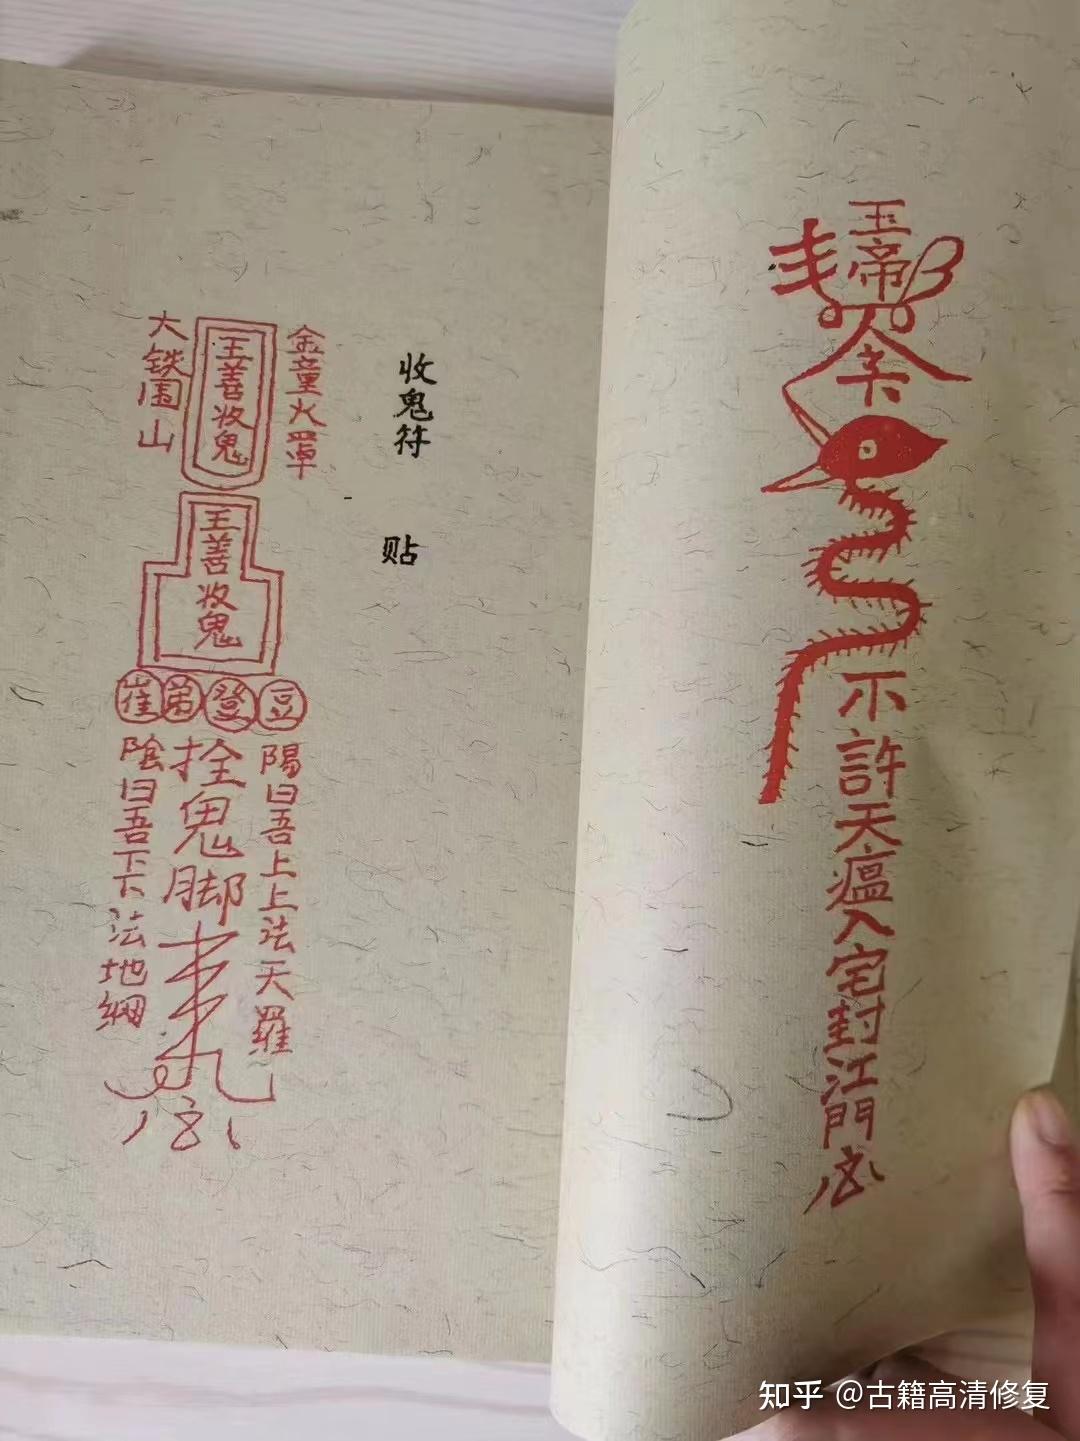 玉帝
不許天瘟入宅封江門
收鬼符 贴
金童火罩
王善收鬼
大铁围山
王善收鬼
豆
登
弟
崔
陽曰吾上上法天羅
拴鬼脚
陰曰吾下下法地網
知乎 @古籍高清修复